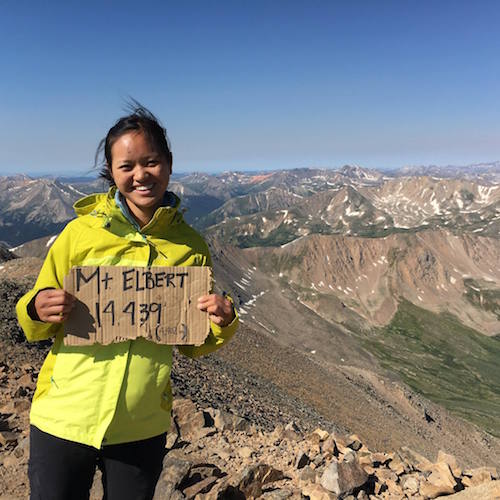 Mt ELBERT
14,439